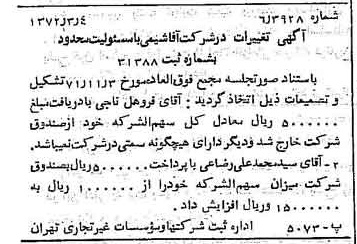 شماره ۶/۳۹۲۸ ۱۳۷۲/۳/۴
آگهی تغییرات درشرکت آفاشیمی بامسئولیت محدود
بشماره ثبت ۳۱۳۸۸
باستناد صورتجلسه مجمع فوق العاده مورخ ۷۱/۱۱/۳ تشکیل
و تصمیمات ذیل اتخاذ گردید: آقای فروهل ناجی بادریافت مبلغ
۵۰۰۰۰۰۰ ریال معادل کل سهم الشرکه خود ازصندوق
شرکت خارج شد ودیگر دارای هیچگونه سمتی درشرکت نمیباشد.
۲- آقای سیدمحمدعلی رضاعی با پرداخت ۵۰۰۰۰۰۰ ریال بصندوق
شرکت میزان سهم الشرکه خودرا از ۱۰۰۰۰۰۰۰ ریال به
۱۵۰۰۰۰۰۰ وریال افزایش داد.
پ-۵۰۷۳ اداره ثبت شرکتها ومؤسسات غیرتجاری تهران